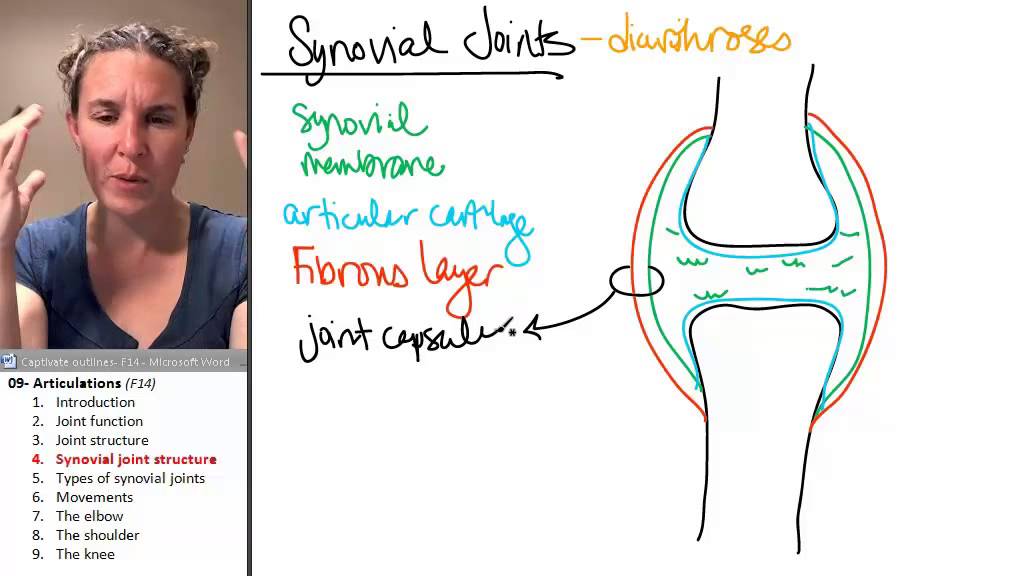 Synovial Joints – diarthroses
synovial
membrane
articular cartilage
Fibrous layer
joint capsule *
Captivate outlines- F14 - Microsoft Word
09- Articulations (F14)
1. Introduction
2. Joint function
3. Joint structure
4. Synovial joint structure
5. Types of synovial joints
6. Movements
7. The elbow
8. The shoulder
9. The knee